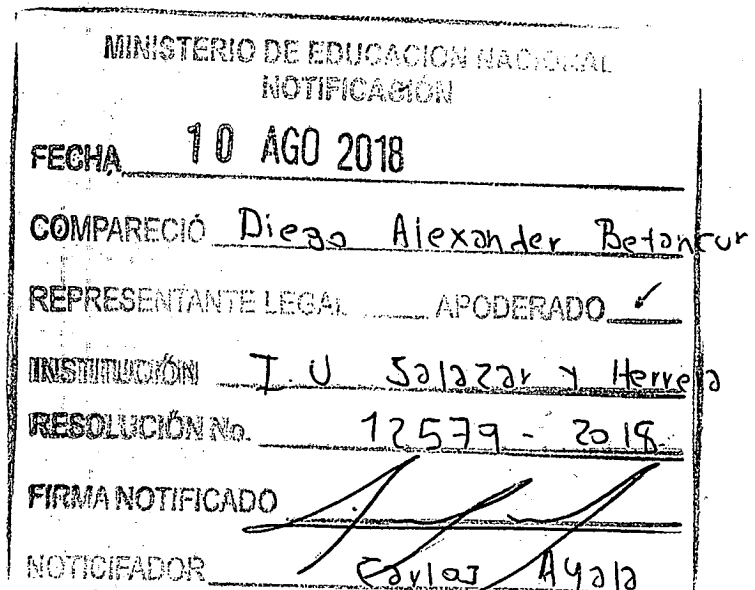 MINISTERIO DE EDUCACION NACIONAL
NOTIFICACIÓN
FECHA 10 AGO 2018
COMPARECIÓ Diego Alexander Betancur
REPRESENTANTE LEGAL APODERADO ✓
INSTITUCIÓN I.U Salazar y Herrera
RESOLUCIÓN No. 12579 - 2018
FIRMA NOTIFICADO
NOTICIFADOR Carlos Ayala